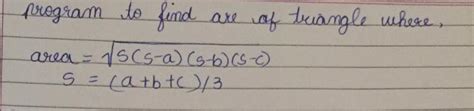 program to find are of truangle where,
area = √s(s-a)(s-b)(s-c)
s = (a+b+c)/3